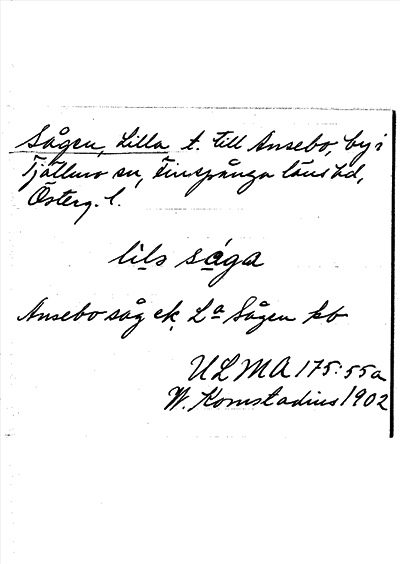 Sågen, Lilla t. till Ansebo, by i
Tjällmo sn, Finspånga läns hd,
Österg. l.
lils såga
Ansebo såg ek, La Sågen kb
ULMA 175:55a
W. Komstadius 1902